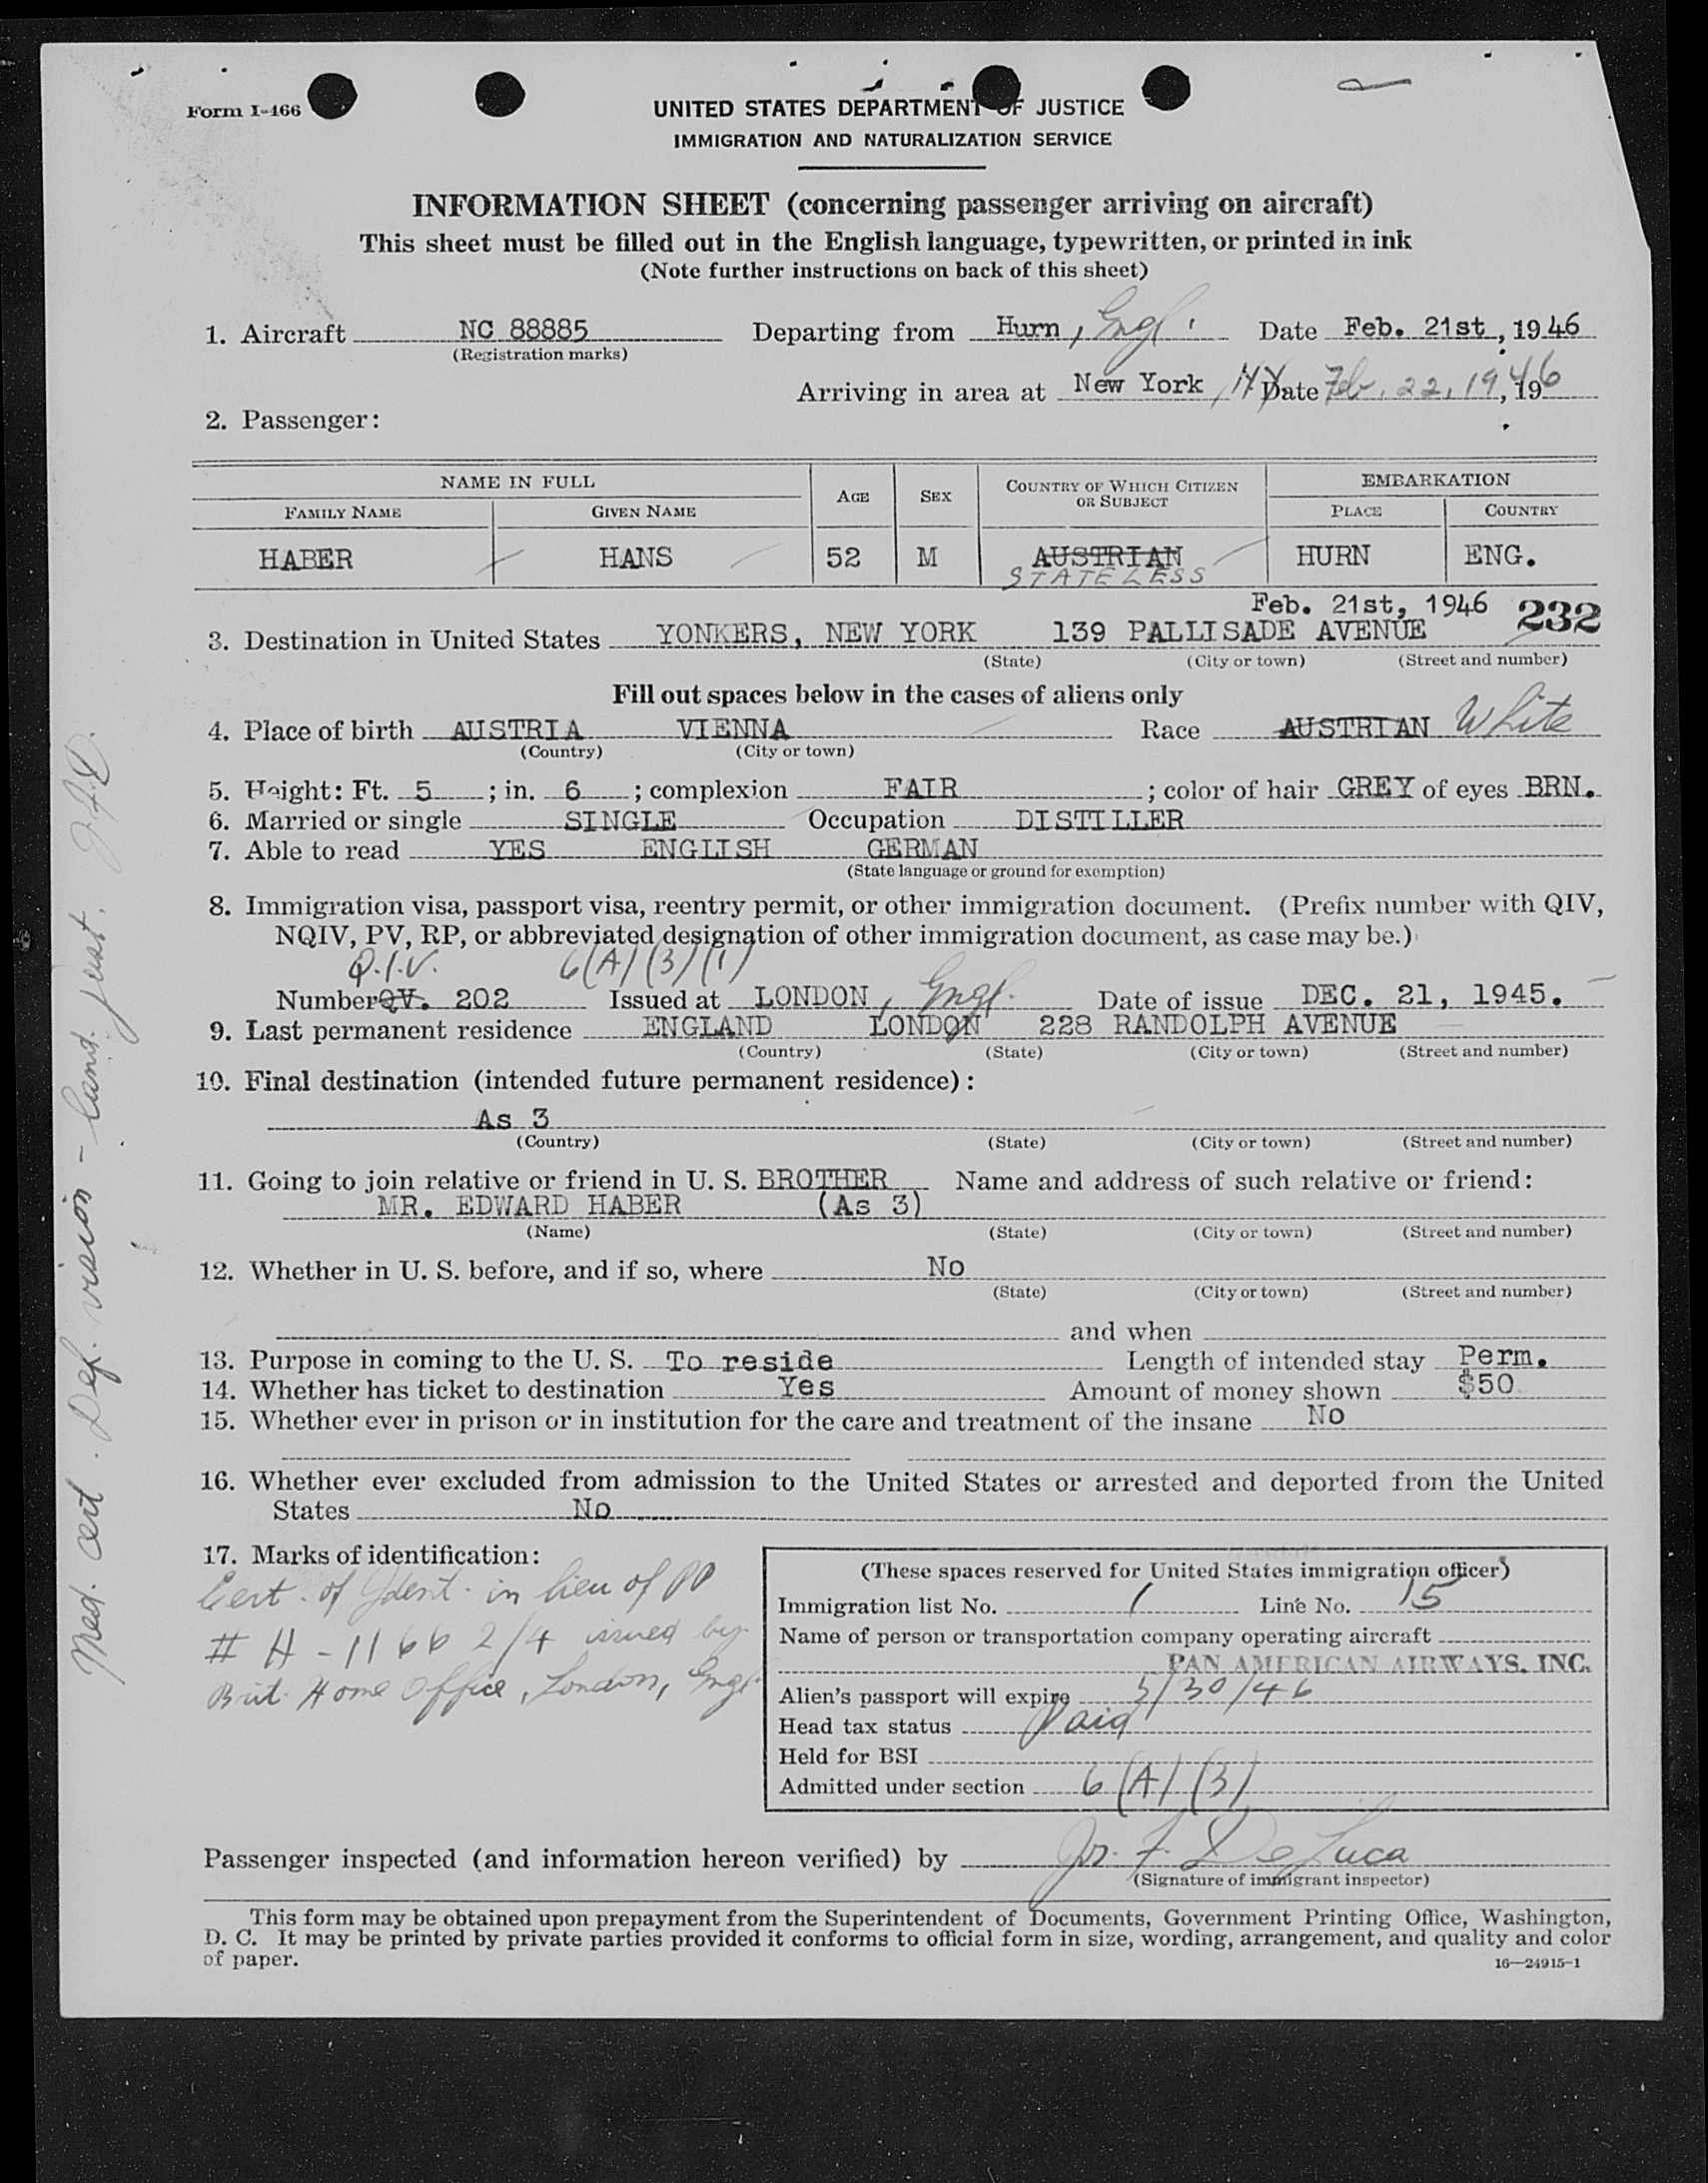 Form I-466
UNITED STATES DEPARTMENT OF JUSTICE
IMMIGRATION AND NATURALIZATION SERVICE
INFORMATION SHEET (concerning passenger arriving on aircraft)
This sheet must be filled out in the English language, typewritten, or printed in ink
(Note further instructions on back of this sheet)
1. Aircraft NC 88885 Departing from Hurn, Engl. Date Feb. 21st, 1946
(Registration marks)
Arriving in area at New York, NY Date Feb. 22, 19, 1946
2. Passenger:
NAME IN FULL AGE SEX COUNTRY OF WHICH CITIZEN OR SUBJECT EMBARKATION
FAMILY NAME GIVEN NAME PLACE COUNTRY
HABER HANS 52 M AUSTRIAN HURN ENG.
STATELESS
Feb. 21st, 1946 232
3. Destination in United States YONKERS, NEW YORK 139 PALLISADE AVENUE
(State) (City or town) (Street and number)
Fill out spaces below in the cases of aliens only
4. Place of birth AUSTRIA VIENNA Race AUSTRIAN White
(Country) (City or town)
5. Height: Ft. 5 ; in. 6 ; complexion FAIR ; color of hair GREY of eyes BRN.
6. Married or single SINGLE Occupation DISTILLER
7. Able to read YES ENGLISH GERMAN
(State language or ground for exemption)
8. Immigration visa, passport visa, reentry permit, or other immigration document. (Prefix number with QIV,
NQIV, PV, RP, or abbreviated designation of other immigration document, as case may be.)
Q.I.V. 6(A)(3)(1)
Number QV. 202 Issued at LONDON, Engl. Date of issue DEC. 21, 1945.
9. Last permanent residence ENGLAND LONDON 228 RANDOLPH AVENUE
(Country) (State) (City or town) (Street and number)
10. Final destination (intended future permanent residence):
As 3
(Country) (State) (City or town) (Street and number)
11. Going to join relative or friend in U. S. BROTHER Name and address of such relative or friend:
MR. EDWARD HABER (As 3)
(Name) (State) (City or town) (Street and number)
12. Whether in U. S. before, and if so, where No
(State) (City or town) (Street and number)
and when
13. Purpose in coming to the U. S. To reside Length of intended stay Perm.
14. Whether has ticket to destination Yes Amount of money shown $50
15. Whether ever in prison or in institution for the care and treatment of the insane No
16. Whether ever excluded from admission to the United States or arrested and deported from the United
States No
17. Marks of identification:
Cert. of Ident. in lieu of PP
# H-1166 2/4 issued by
Brit. Home Office, London, Engl.
(These spaces reserved for United States immigration officer)
Immigration list No. 1 Line No. 15
Name of person or transportation company operating aircraft
PAN AMERICAN AIRWAYS, INC.
Alien's passport will expire 5/30/46
Head tax status Paid
Held for BSI
Admitted under section 6(A)(3)
Passenger inspected (and information hereon verified) by Jos. F. DeLuca
(Signature of immigrant inspector)
This form may be obtained upon prepayment from the Superintendent of Documents, Government Printing Office, Washington,
D. C. It may be printed by private parties provided it conforms to official form in size, wording, arrangement, and quality and color
of paper.
16—24915-1
Med. cert. Def. vision - land. just. J.F.D.